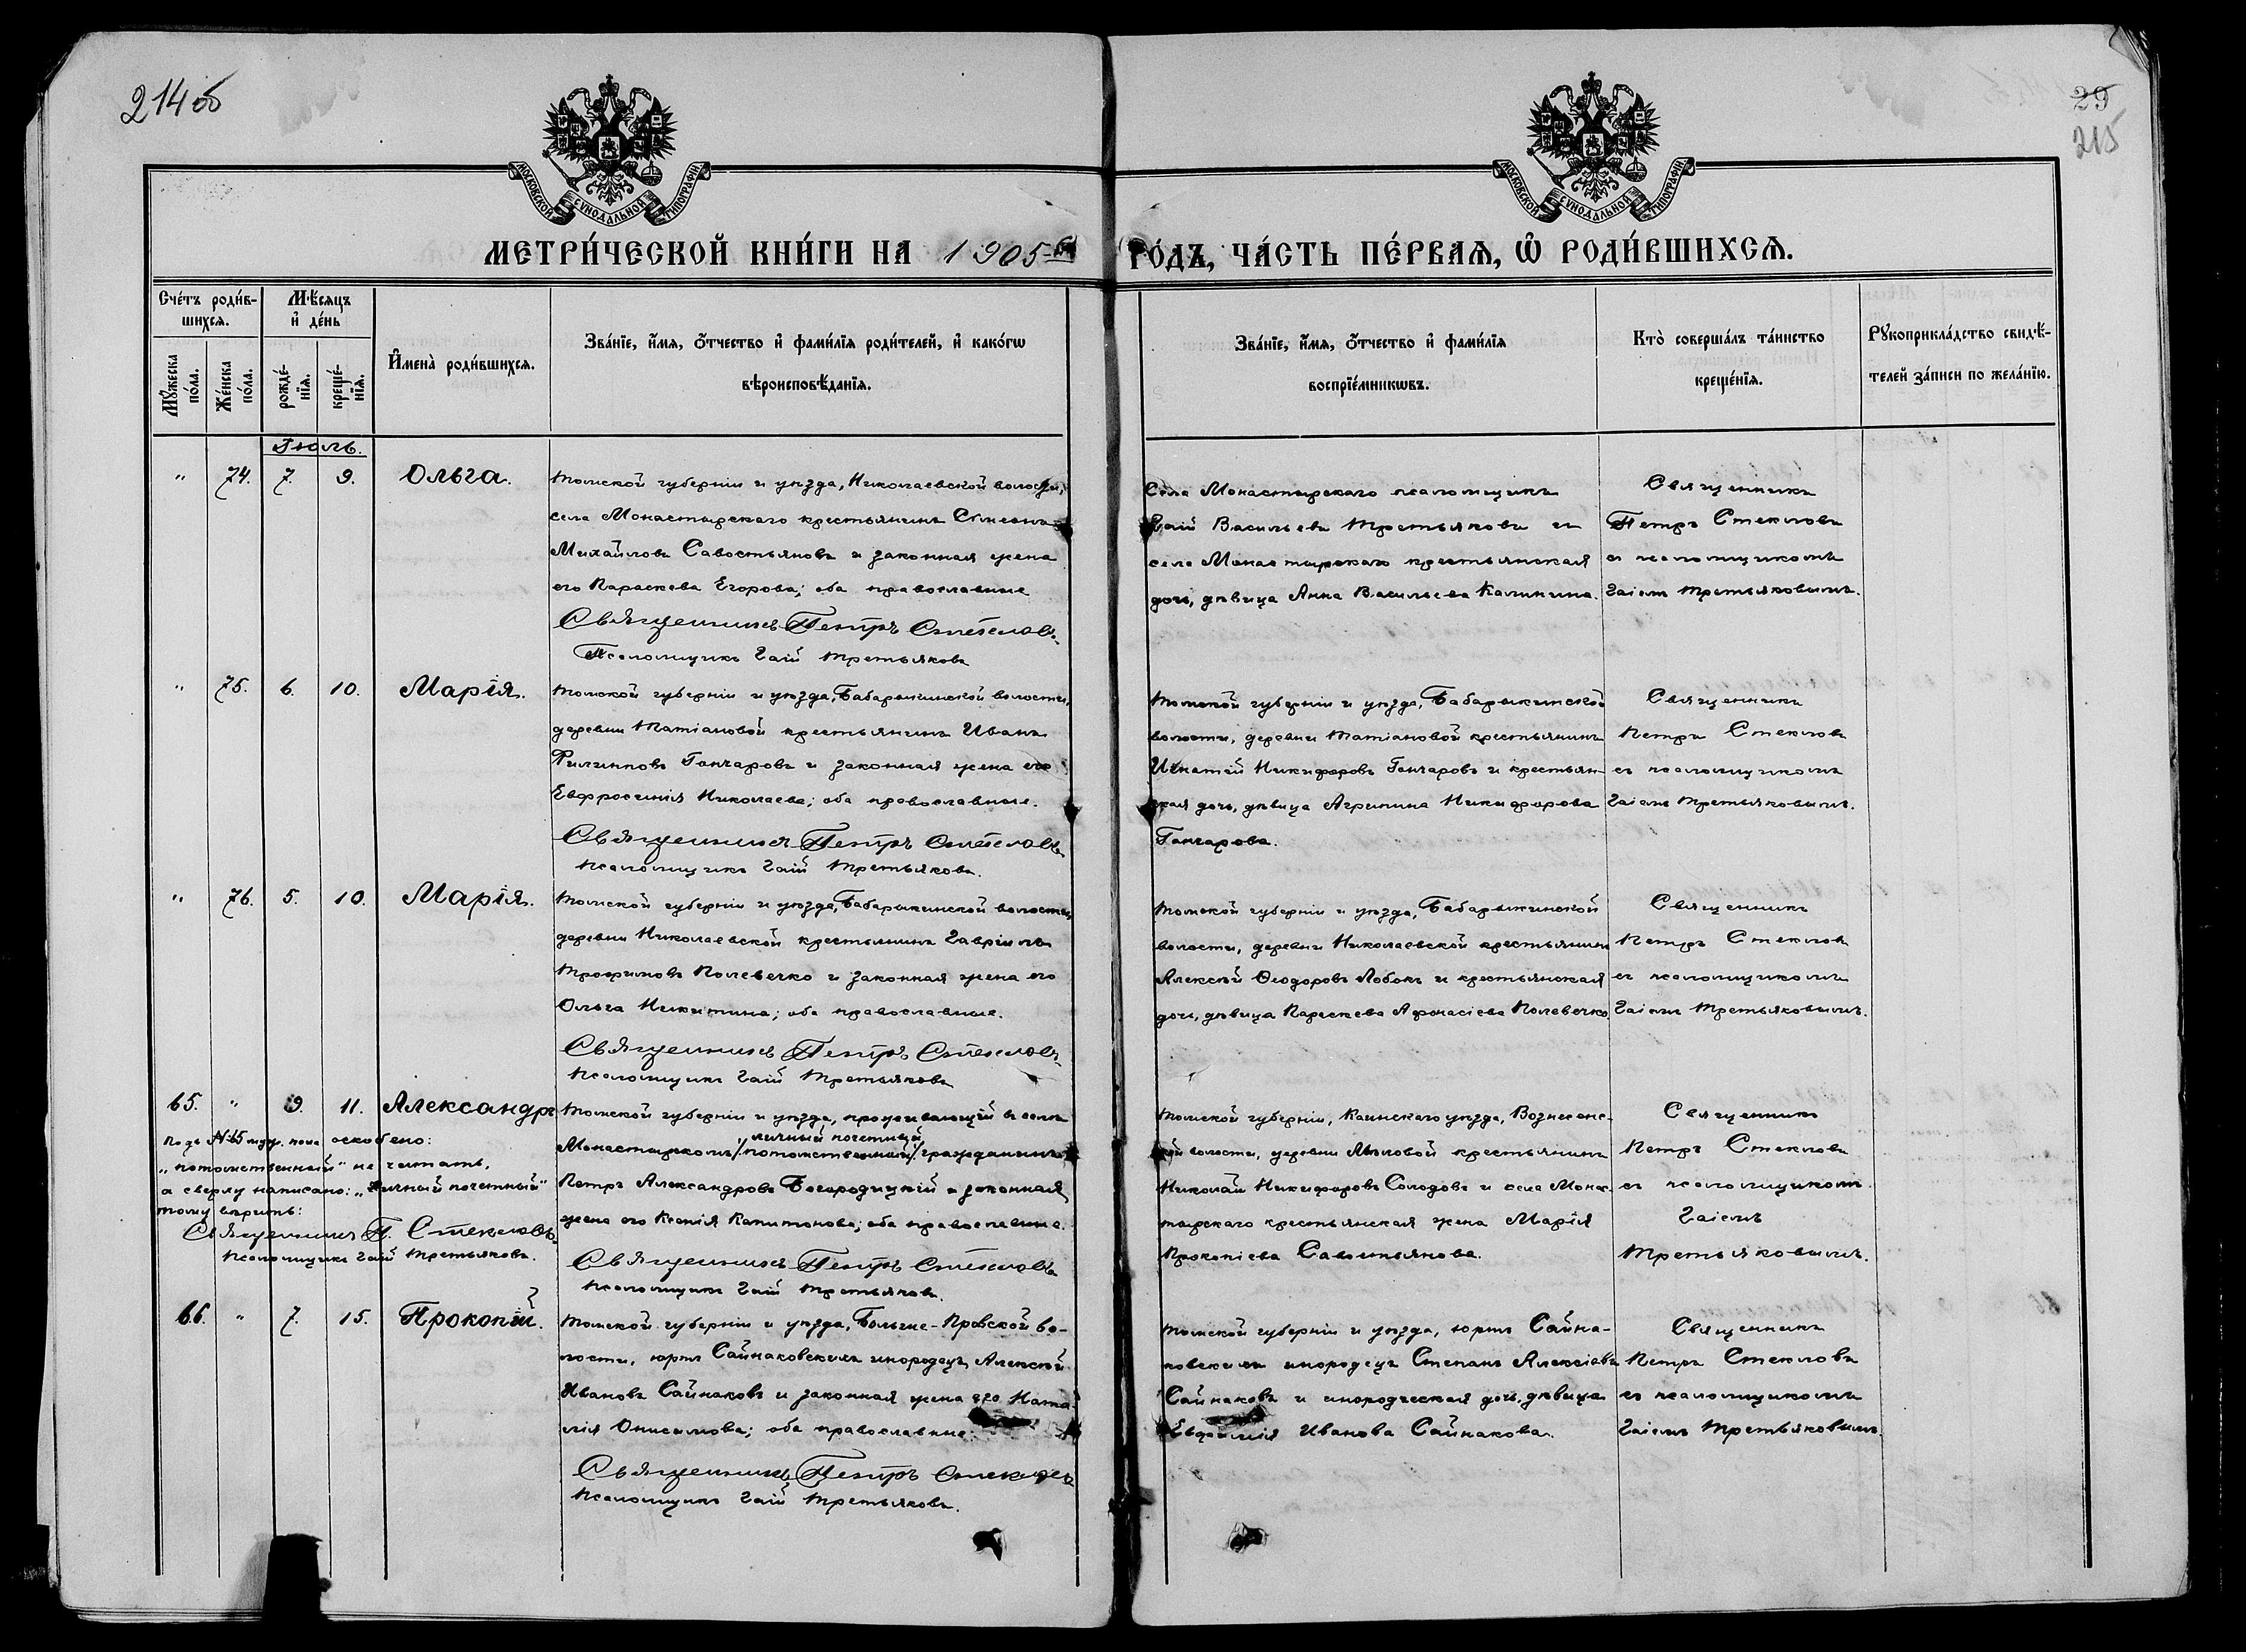 214 об
29
215
МОСКОВСКОЙ СѴНОДАЛЬНОЙ ТИПОГРАФІИ
МОСКОВСКОЙ СѴНОДАЛЬНОЙ ТИПОГРАФІИ
МЕТРИ́ЧЕСКОЙ КНИ́ГИ НА 1905-й
ГО́ДЪ, ЧА́СТЬ ПЕ́РВАѦ, Ѡ҆ РОДИ́ВШИХСѦ.
Сче́тъ роди́в-
шихсѧ.
Мꙋ́жеска по́ла.
Же́нска по́ла.
Мѣ́сѧцъ и҆ де́нь
рожде́-
нїѧ.
креще́-
нїѧ.
И҆мена̀ роди́вшихсѧ.
Зва́нїе, и҆́мѧ, ѻ҆́тчество и҆ фами́лїѧ роди́телей, и҆ како́гѡ
вѣроисповѣ́данїѧ.
Зва́нїе, и҆́мѧ, ѻ҆́тчество и҆ фами́лїѧ
воспрїе́мникѡвъ.
Кто̀ соверша́лъ та́инство
креще́нїѧ.
Рꙋкоприкла́дство свидѣ́-
телей за́писи по жела́нїю.
Іюль.
" 74. 7. 9. Ольга.
Томской губерніи и уѣзда, Николаевской волости,
села Монастырскаго крестьянинъ Симеонъ
Михайловъ Савостьяновъ и законная жена
его Параскева Егорова; оба православные
Священникъ Петръ Стекловъ
Псаломщикъ Гаій Третьяковъ
Села Монастырскаго псаломщикъ
Гаій Васильевъ Третьяковъ и
села Монастырскаго крестьянская
дочь, дѣвица Анна Васильева Калинина.
Священникъ
Петръ Стекловъ
съ псаломщикомъ
Гаіемъ Третьяковымъ.
" 75. 6. 10. Марія.
Томской губерніи и уѣзда, Бабарыкинской волости,
деревни Татіановой крестьянинъ Иванъ
Филипповъ Гончаровъ и законная жена его
Евфросинія Николаева; оба православные.
Священникъ Петръ Стекловъ
Псаломщикъ Гаій Третьяковъ.
Томской губерніи и уѣзда, Бабарыкинской
волости, деревни Татіановой крестьянинъ
Игнатій Никифоровъ Гончаровъ и крестьян-
ская дочь, дѣвица Агрипина Никифорова
Гончарова.
Священникъ
Петръ Стекловъ
съ псаломщикомъ
Гаіемъ Третьяковымъ.
" 76. 5. 10. Марія.
Томской губерніи и уѣзда, Бабарыкинской волости,
деревни Николаевской крестьянинъ Гавріилъ
Трофимовъ Полевечко и законная жена его
Ольга Никитина; оба православные.
Священникъ Петръ Стекловъ
Псаломщикъ Гаій Третьяковъ
Томской губерніи и уѣзда, Бабарыкинской
волости, деревни Николаевской крестьянинъ
Алексѣй Ѳеодоровъ Лобокъ и крестьянская
дочь, дѣвица Параскева Афонасіева Полевечко.
Священникъ
Петръ Стекловъ
съ псаломщикомъ
Гаіемъ Третьяковымъ.
65. " 9. 11. Александръ
Томской губерніи и уѣзда, проживающій въ селѣ
личный почетный
Монастырскомъ /потомственный/ гражданинъ
Петръ Александровъ Богородицкій и законная
жена его Ксенія Капитонова; оба православные.
Священникъ Петръ Стекловъ
Псаломщикъ Гаій Третьяковъ.
Подъ №65 муж. пола оскоблено:
"потомственный" не читать,
а сверху написано: "личный почетный"
тому вѣрить:
Священникъ П. Стекловъ
Псаломщикъ Гаій Третьяковъ.
Томской губерніи, Каинскаго уѣзда, Вознесенс-
кой волости, деревни Мыловой крестьянинъ
Николай Никифоровъ Солодовъ и села Монас-
тырскаго крестьянская жена Марія
Прокопіева Савостьянова.
Священникъ
Петръ Стекловъ
съ псаломщикомъ
Гаіемъ
Третьяковымъ.
66. " 7. 15. Прокопій.
Томской губерніи и уѣзда, Больше-Провской во-
лости, юртъ Сайнаковскихъ инородецъ Алексѣй
Ивановъ Сайнаковъ и законная жена его Ната-
лія Онисимова; оба православные.
Священникъ Петръ Стекловъ
Псаломщикъ Гаій Третьяковъ.
Томской губерніи и уѣзда, юртъ Сайна-
ковскихъ инородецъ Степанъ Алексіевъ
Сайнаковъ и инородческая дочь, дѣвица
Евфимія Иванова Сайнакова.
Священникъ
Петръ Стекловъ
съ псаломщикомъ
Гаіемъ Третьяковымъ.